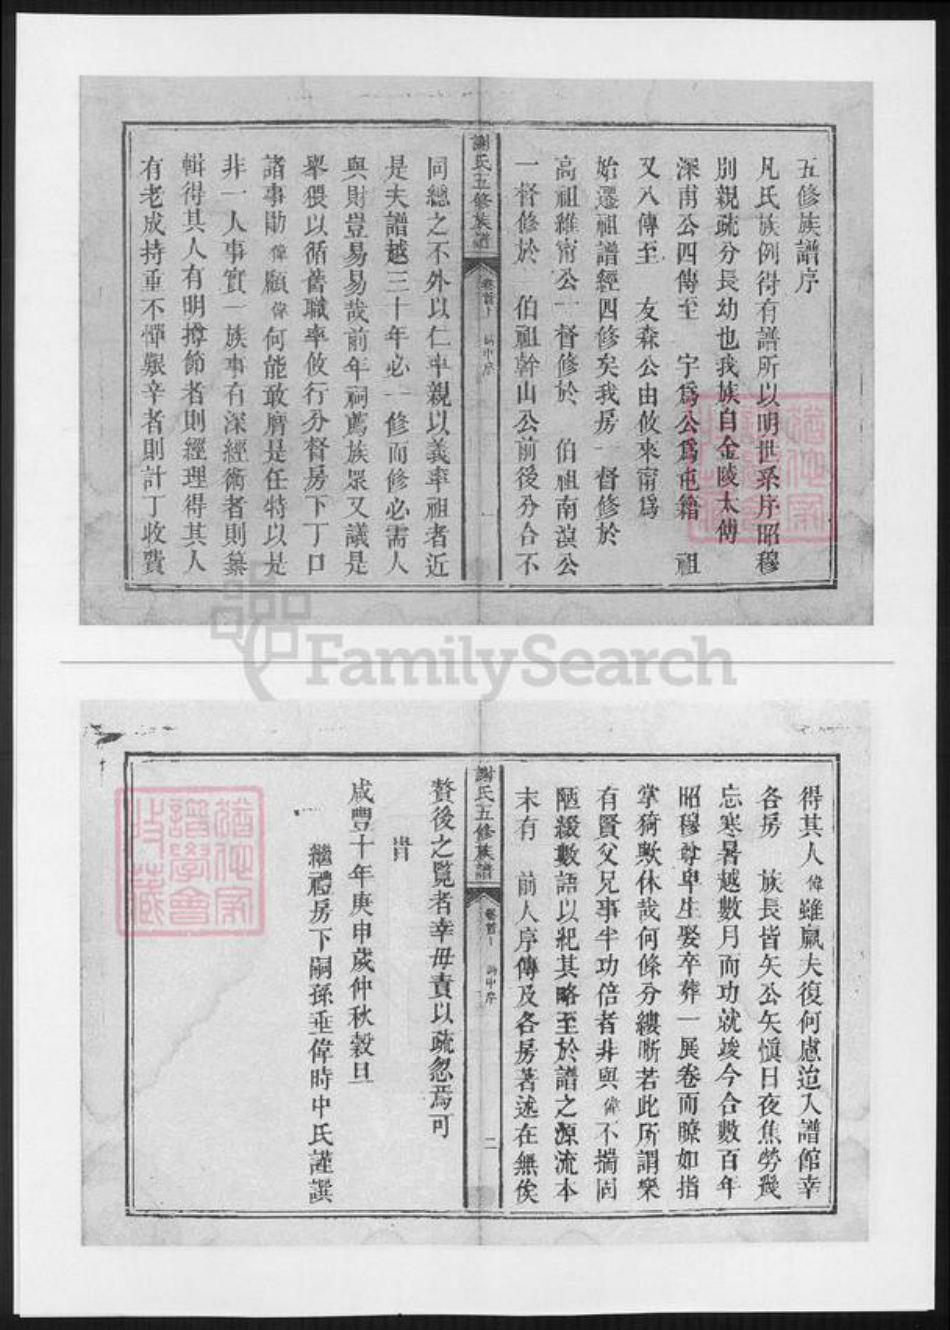 五修族譜序
凡氏族例得有譜所以明世系序昭穆
別親疏分長幼也我族自金陵太傅
深甫公四傳至 宇為公為屯籍 祖
又八傳至 友森公由攸來甯為
始遷祖譜經四修矣我房一督修於
高祖維甯公一督修於 伯祖南溟公
一督修於 伯祖幹山公前後分合不
謝氏五修族譜
卷首上 時中序 一
同總之不外以仁率親以義率祖者近
是夫譜越三十年必一修而修必需人
與財豈易易哉前年祠薦族眾又議是
舉猥以循舊職率攸行分督房下丁口
諸事勛偉顧偉何能敢膺是任特以是
非一人事實一族事有深經術者則纂
輯得其人有明撙節者則經理得其人
有老成持重不憚艱辛者則計丁收費
得其人偉雖羸夫復何慮迨入譜館幸
各房 族長皆矢公矢慎日夜焦勞幾
忘寒暑越數月而功就竣今合數百年
昭穆尊卑生娶卒葬一展卷而瞭如指
掌猗歟休哉何條分縷晰若此所謂樂
有賢父兄事半功倍者非與偉不揣固
陋綴數語以紀其略至於譜之源流本
末有 前人序傳及各房著述在無俟
謝氏五修族譜
卷首上 時中序 二
贅後之覽者幸毋責以疏忽焉可
旹
咸豐十年庚申歲仲秋穀旦
繼禮房下嗣孫垂偉時中氏謹譔
FamilySearch